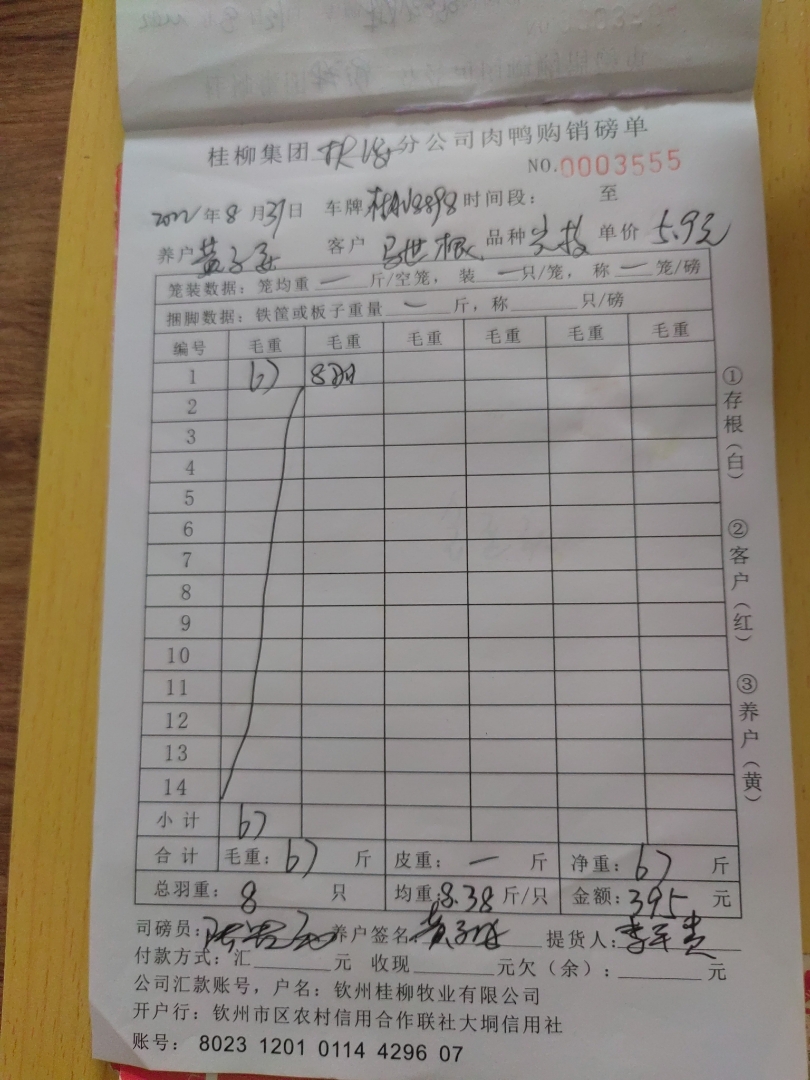 桂柳集团 分公司肉鸭购销磅单
NO.0003555
2022年8月31日 车牌 时间段： 至
养户 黄 客户 马世根 品种 单价 5.9元
笼装数据：笼均重 一 斤/空笼，装 一 只/笼，称 一 笼/磅
捆脚数据：铁筐或板子重量 一 斤，称 只/磅
编号 毛重 毛重 毛重 毛重 毛重 毛重
1 67 8只
2
3
4
5
6
7
8
9
10
11
12
13
14
小计 67
合计 毛重：67 斤 皮重：一 斤 净重：67 斤
总羽重：8 只 均重：8.38斤/只 金额：395元
司磅员： 养户签名：黄 提货人：李 贵
付款方式：汇 元 收现 元欠（余）： 元
公司汇款账号，户名：钦州桂柳牧业有限公司
开户行：钦州市区农村信用合作联社大垌信用社
账号： 8023 1201 0114 4296 07
①存根（白）
②客户（红）
③养户（黄）